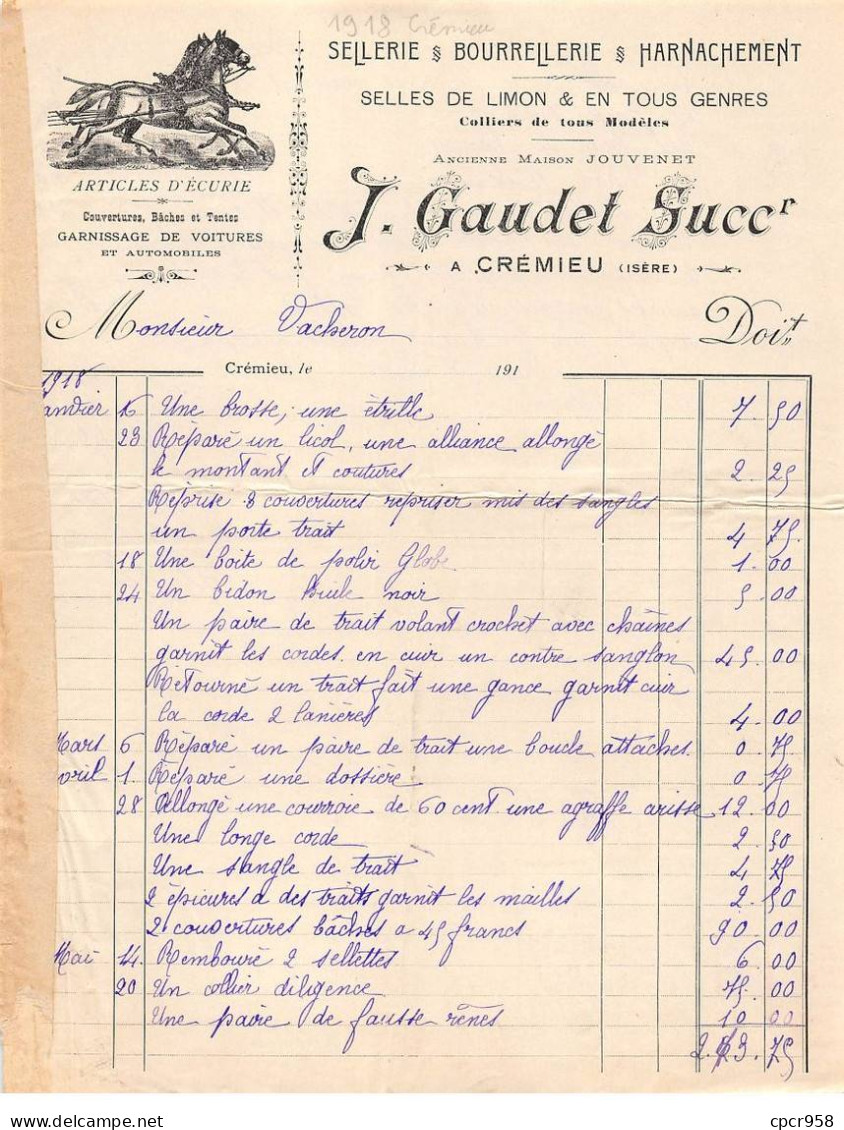 1918 Crémieu
SELLERIE § BOURRELLERIE § HARNACHEMENT
SELLES DE LIMON & EN TOUS GENRES
Colliers de tous Modèles
ANCIENNE MAISON JOUVENET
J. Gaudet Succr
A CRÉMIEU (ISÈRE)
ARTICLES D'ÉCURIE
Couvertures, Bâches et Tentes
GARNISSAGE DE VOITURES
ET AUTOMOBILES
Monsieur Vacheron Doit
Crémieu, le 191
1918
anvier 16 Une brosse, une étrille 7.50
23 Réparé un licol, une alliance allongé
le montant et coutures 2.25
Reprise 8 couvertures repriser mis des sangles
un porte trait 4 75.
18 Une boite de polir Globe 1.00
24 Un bidon huile noir 5.00
Un paire de trait volant crochet avec chaînes
garnit les cordes en cuir un contre sanglon 45.00
Retourné un trait fait une gance garnit cuir
la corde 2 lanières 4.00
Mars 6 Réparé un paire de trait une boucle attaches 0.75
vril 1. Réparé une dossière 0 75
28 Allongé une courroie de 60 cent une agraffe 12.00
Une longe corde 2.50
Une sangle de trait 4 75
2 épicures a des traits garnit les mailles 2.50
2 couvertures bâches a 45 francs 90.00
Mai 14. Rembourré 2 sellettes 6.00
20 Un collier diligence 75.00
Une paire de fausse rênes 10 00
75
cpcr958